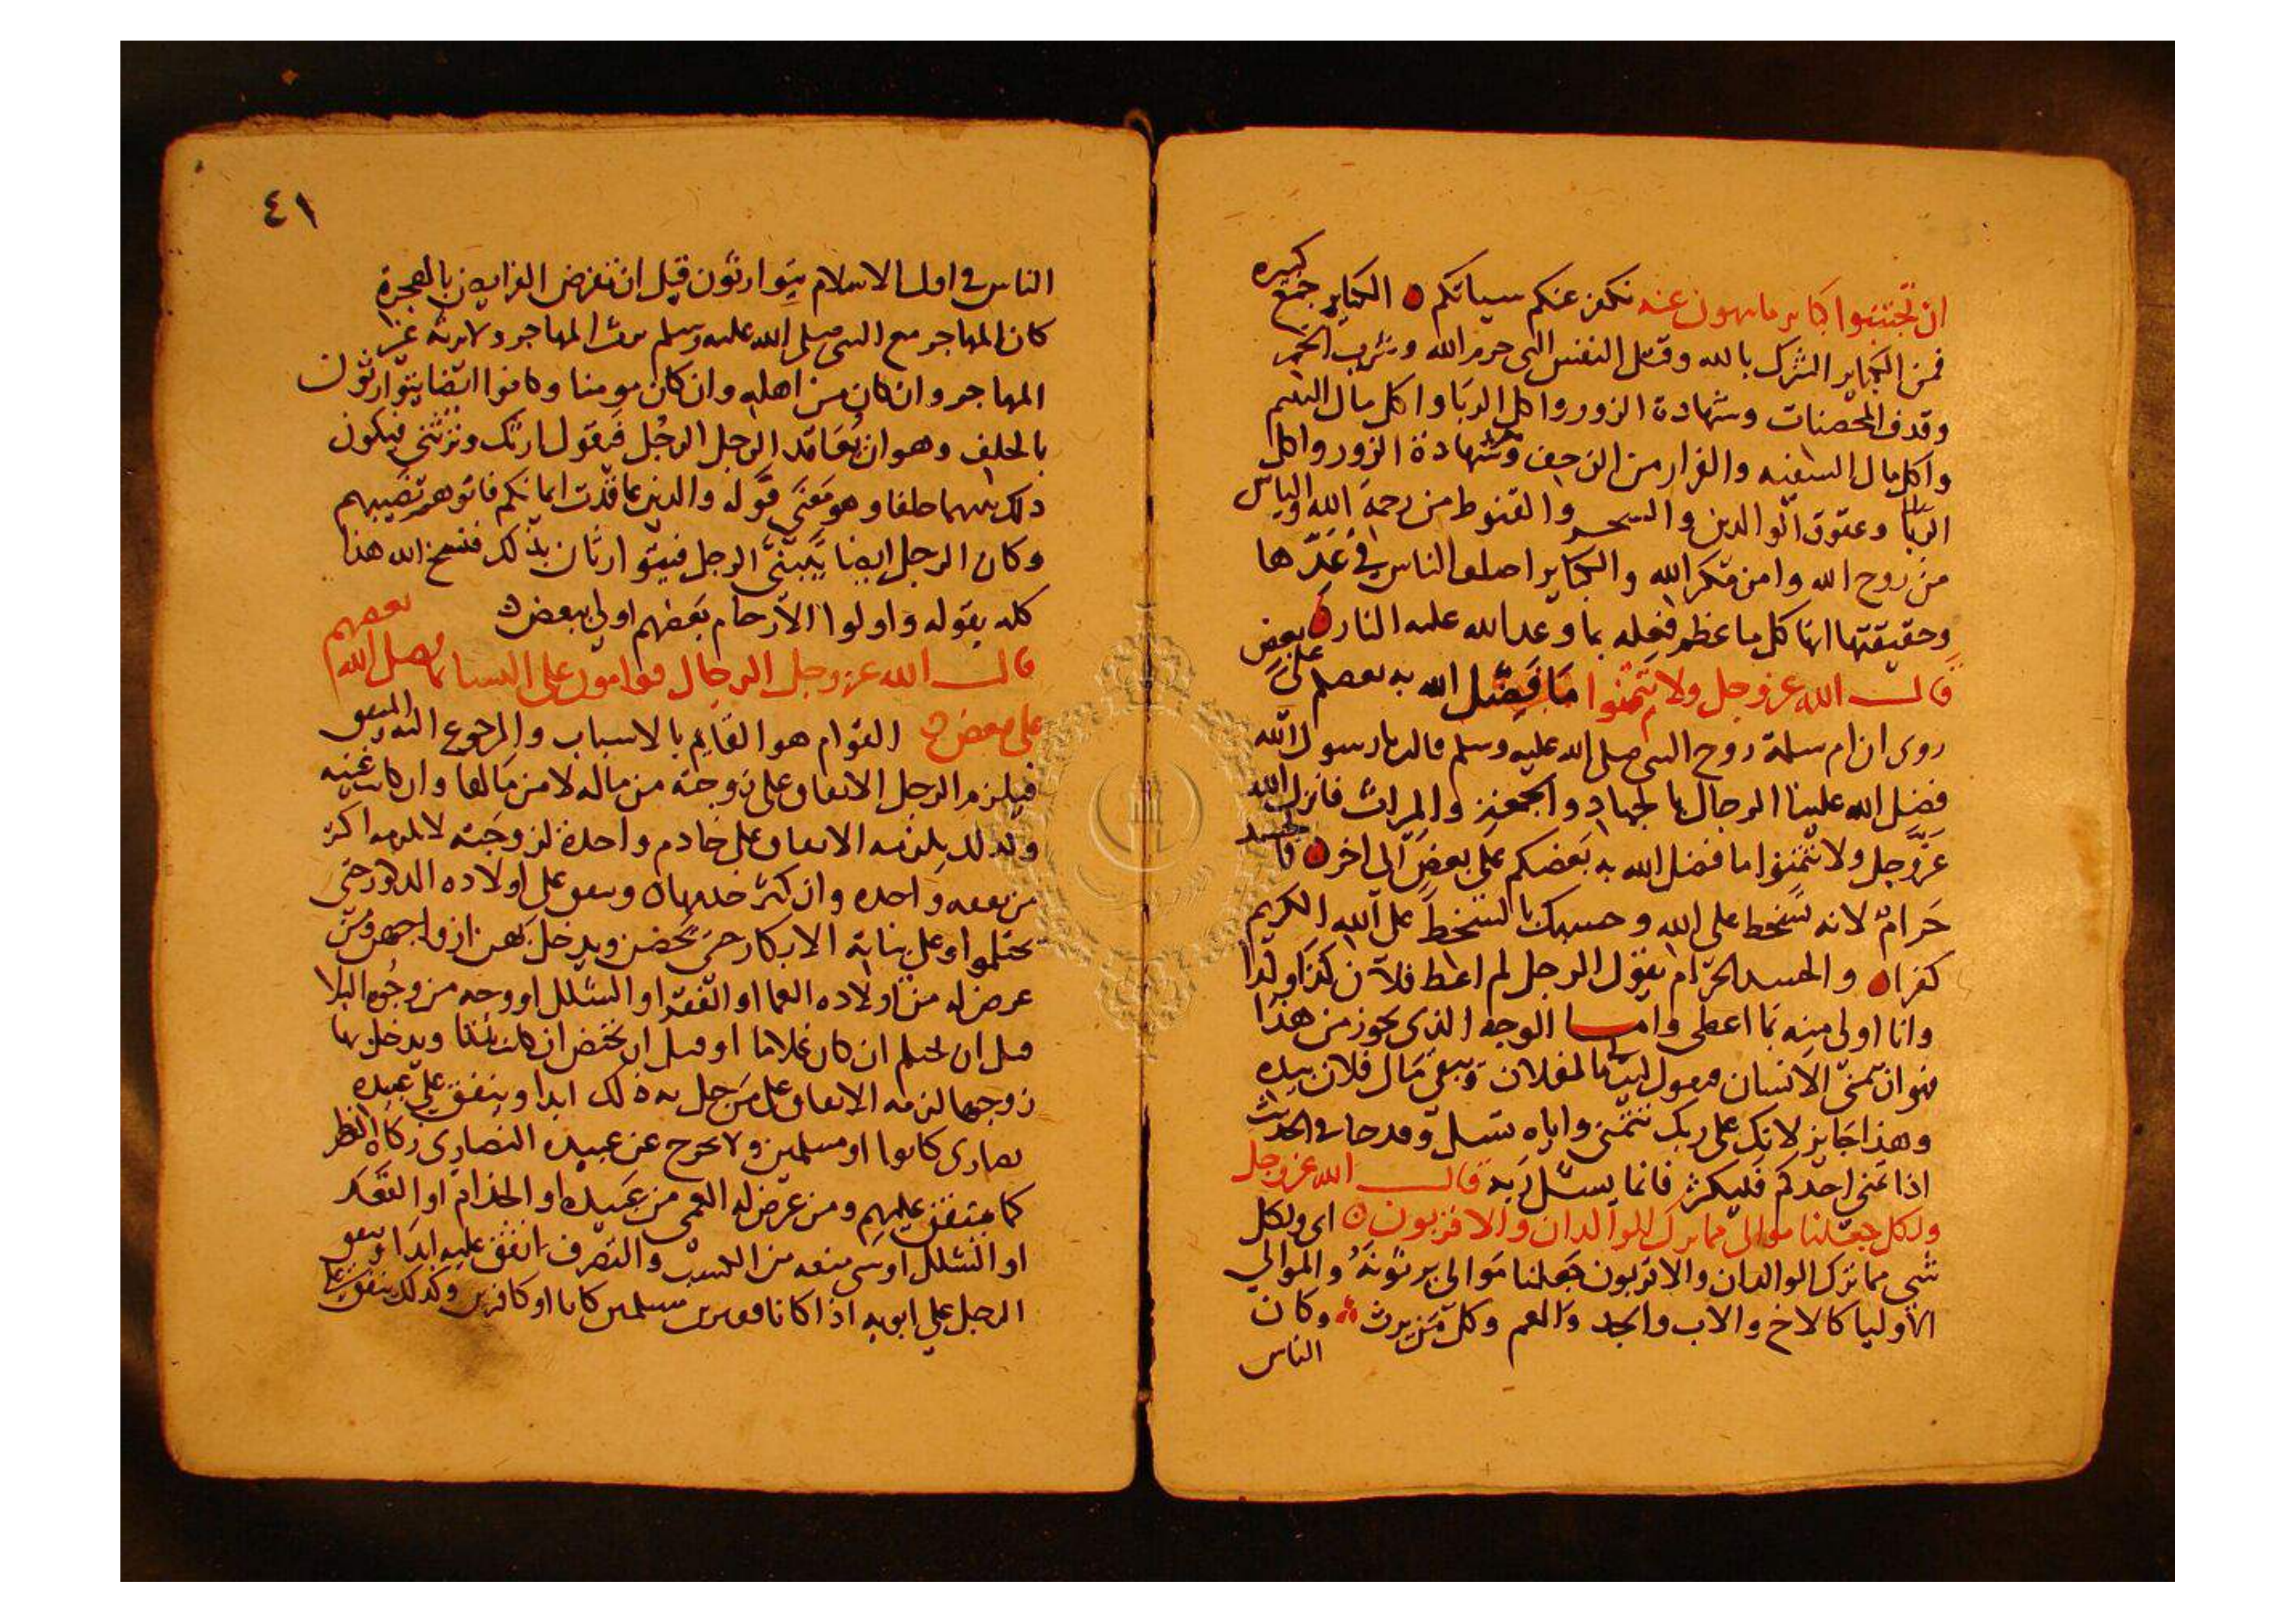 ان تجتنبوا كباير ما تنهون عنه نكفر عنكم سياتكم ۞ الكباير جمع كبيره
فمن الكباير الشرك بالله وقتل النفس التي حرم الله وشرب الخمر
وقذف المحصنات وشهادة الزور واكل الربا واكل مال اليتيم
واكل مال السفيه والفرار من الزحف وشهادة الزور واكل
الربا وعقوق الوالدين والسحر والقنوط من رحمة الله والياس
من روح الله وامن مكر الله والكباير اختلف الناس في عدها
وحقيقتها انها كل ما عظم فعله بما وعد الله عليه النار
قال الله عز وجل ولا تتمنوا ما فضل الله به بعضكم على بعض
روى ان ام سلمة زوج النبي صلى الله عليه وسلم قالت يا رسول الله
فضل الله علينا الرجال بالجهاد والجمعة والميراث فانزل الله
عز وجل ولا تتمنوا ما فضل الله به بعضكم على بعض الى اخره فالحسد
حرام لانه تسخط على الله وحسبك بالتسخط على الله الكريم
كفرا والحسد الحرام يقول الرجل لم اعط فلان كذا وكذا
وانا اولى منه بما اعطى واما الوجه الذي يجوز من هذا
فهو ان يتمنى الانسان فيقول ليت لي مالفلان ويبقى مال فلان بيده
وهذا جايز لانك على ربك تتمنى واياه تسل وقد جا في الحديث
اذا تمنى احدكم فليكثر فانما يسئل ربه قال الله عز وجل
ولكل جعلنا موالى مما ترك الوالدان والاقربون اى ولكل
شي مما ترك الوالدان والاقربون جعلنا موالى يرثونه والموالي
الاوليا كالاخ والاب والجد والعم وكل من يرث وكان
الناس
٤١
الناس في اول الاسلام يتوارثون قبل ان تفرض الفرايض بالهجرة
كان المهاجر مع النبي صلى الله عليه وسلم يرث المهاجر ولا يرثه غير
المهاجر وان كان من اهله وان كان مومنا وكانوا ايضا يتوارثون
بالحلف وهو ان يعاقد الرجل الرجل فيقول ارثك وترثني فيكون
ذلك بينهما حلفا وهو معنى قوله والذين عاقدت ايمانكم فاتوهم نصيبهم
وكان الرجل ايضا يتبنى الرجل فيتوارثان بذلك فنسخ الله هذا
كله بقوله واولوا الارحام بعضهم اولى ببعض
قال الله عز وجل الرجال قوامون على النسا بما فضل الله بعضهم
على بعض القوام هو القايم بالاسباب والمرجوع اليه
فيلزم الرجل الانفاق على زوجته من ماله لا من مالها وان كانت غنيه
وكذلك يلزمه الانفاق على خادم واحدة لزوجته لا يلزمه اكثر
من نفقه واحده وان كثر خدمها وينفق على اولاده الذكور حتى
يحتلموا وعلى بناته الابكار حتى يحضن ويدخل بهن ازواجهن ومن
عرض له من اولاده العما او الفقد او الشلل او وجه من وجوه البلا
قبل ان يحتلم ان كان غلاما او قبل ان تحتض ان كانت بنتا ويدخل بها
زوجها لزمه الانفاق على من حل به ذلك ابدا وينفق على عبيده
نصارى كانوا او مسلمين ولا يخرج عن عبيده النصارى زكاة الفطر
كما ينفق عليهم ومن عرض له العمى من عبيده او الجذام او التقعد
او الشلل او شي منعه من السبب والتصرف انفق عليه ابدا وينفق
الرجل على ابويه اذا كانا فقيرين مسلمين كانا او كافرين وكذلك ينفق